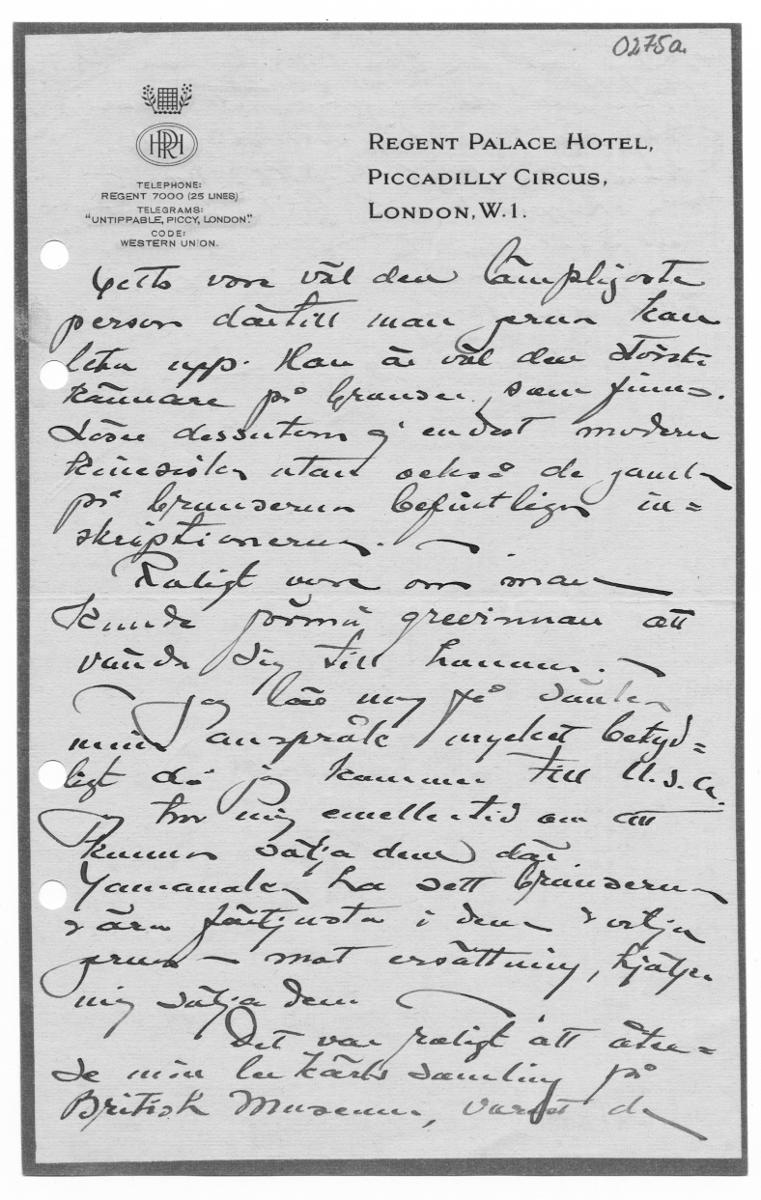 0275a.
HPRH
REGENT PALACE HOTEL,
PICCADILLY CIRCUS,
LONDON, W.1.
TELEPHONE:
REGENT 7000 (25 LINES)
TELEGRAMS:
"UNTIPPABLE, PICCY, LONDON."
CODE:
WESTERN UNION.
Yetts vore väl den lämpligaste
person därtill man gerna kan
leta upp. Han är väl den största
kännare på bronser, som finns.
Läser dessutom ej endast modern
kinesiska utan också de gamla
på bronserna befintliga in=
skriptionerna.
Roligt vore om man
kunde förmå grevinnan att
vända sig till honom.
Jag lär nog få sänka
mina anspråk mycket betyd=
ligt då jag kommer till U.S.A.
Jag tror mig emellertid om att
kunna sälja dem där
Yamanaka ha sett bronserna
& äro förtjusta i dem & vilja
gerna – mot ersättning, hjälpa
mig sälja dem
Det var roligt att åter=
se min lackärls samling på
British Museum, varest de